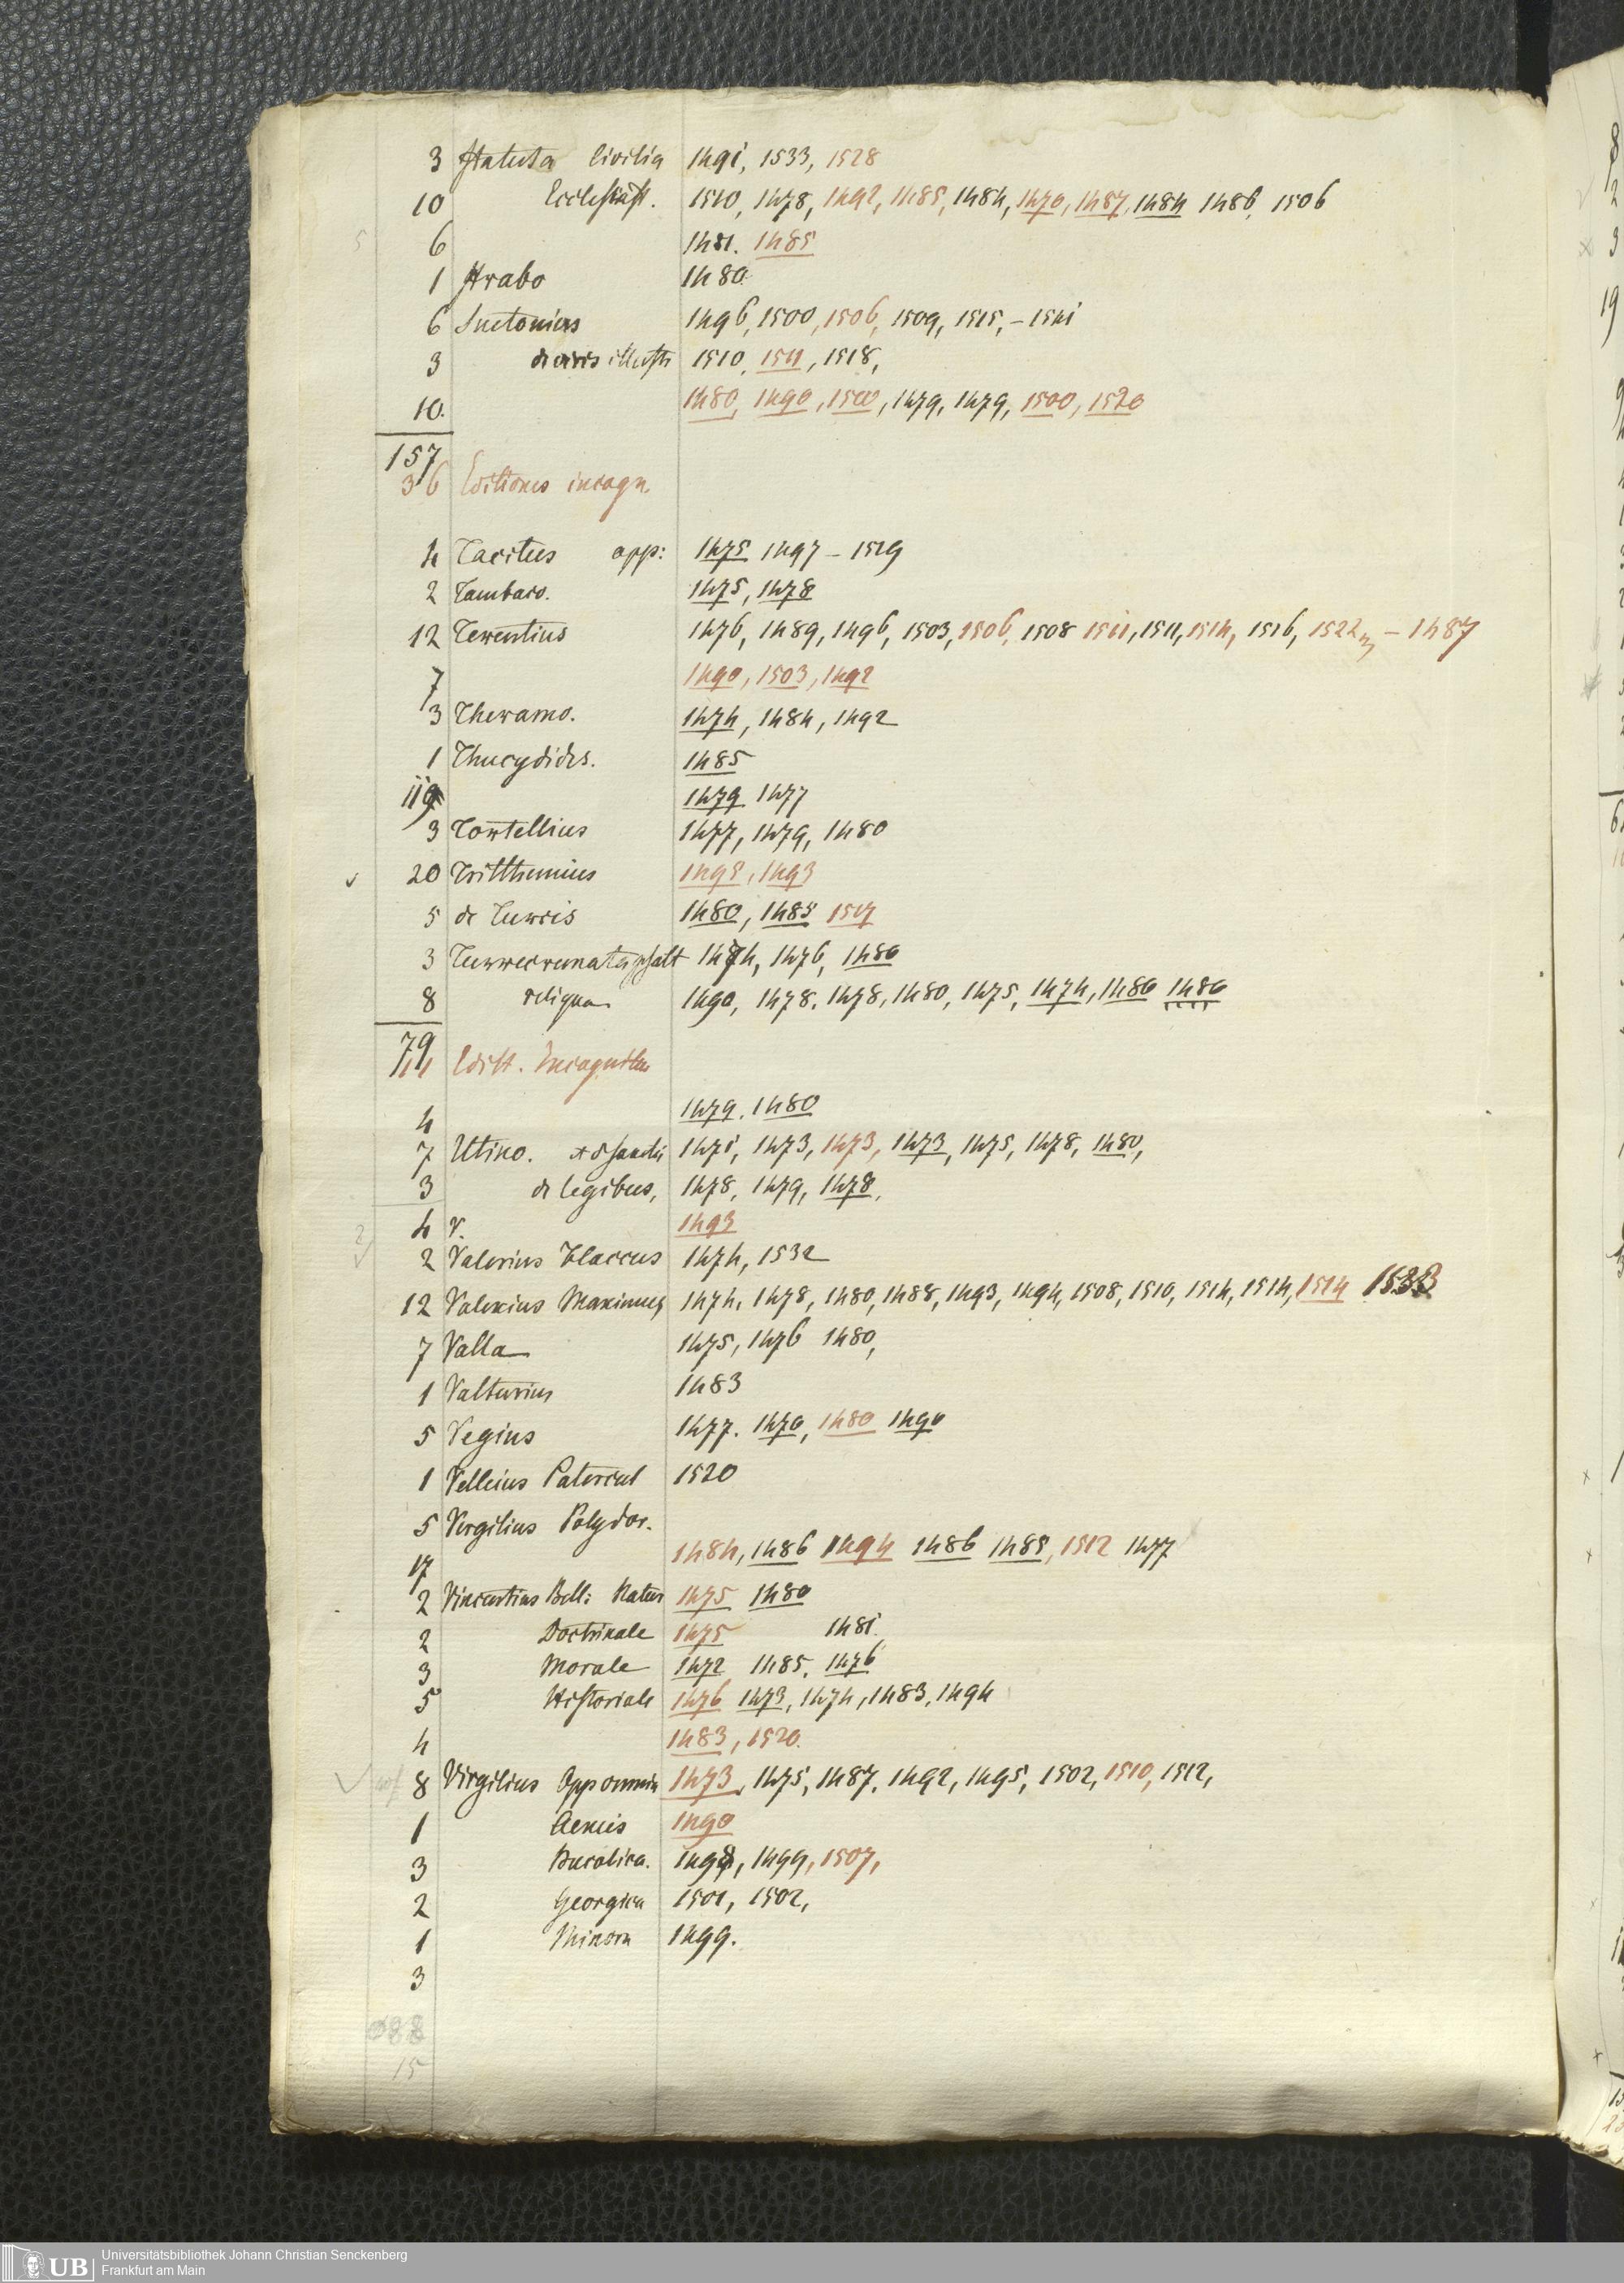 3 Statuta Civilia 1491, 1533, 1528
10 Ecclesiast. 1510, 1478, 1492, 1485, 1484, 1470, 1487, 1484 1486, 1506
6 1481. 1485
1 Strabo 1480
6 Suetonius 1496, 1500, 1506, 1509, 1515, – 1541
3 de viris illustr 1510, 1511, 1518,
10. 1480, 1490, 1500, 1479, 1479, 1500, 1520
157
36 Editiones incogn.
4 Tacitus opp: 1475 1497 – 1519
2 Tambaco. 1475, 1478
12 Terentius 1476, 1489, 1496, 1503, 1506, 1508 1511, 1511, 1514, 1516, 1522, – 1487
7 1490, 1503, 1492
3 Theramo. 1474, 1484, 1492
1 Thucydides. 1485
1479 1477
3 Tortellius 1477, 1479, 1480
20 Tritthemius 1495, 1493
5 de Turris 1480, 1485 1517
3 Turrecremata psalt 1474, 1476, 1480
8 reliqua 1490, 1478, 1478, 1480, 1475, 1474, 1480 1480
79
Editt. Incognitae
4 1479. 1480
7 Utino. de Sanctis 1471, 1473, 1473, 1473, 1475, 1478, 1480,
3 de legibus, 1478, 1479, 1478,
4 V. 1493
2 Valerius Flaccus 1474, 1532
12 Valerius Maximus 1474, 1478, 1480, 1488, 1493, 1494, 1508, 1510, 1514, 1514, 1514 1533
7 Valla 1475, 1476 1480,
1 Valturius 1483
5 Vegius 1477. 1470, 1480 1490
1 Velleius Patercul 1520
5 Vergilius Polydor.
17 1484, 1486 1494 1486 1485, 1512 1477
2 Vincentius Bell: Natur 1475 1480
2 Doctrinale 1475 1481.
3 Morale 1472 1485, 1476
5 Historiale 1476 1473, 1474, 1483, 1494
4 1483, 1520.
8 Virgilius Opp omnia 1473, 1475, 1487, 1492, 1495, 1502, 1510, 1512,
1 Aeneis 1490
3 Bucolica. 1498, 1499, 1507,
2 Georgica 1501, 1502,
1 Minora 1499.
3
88
15
UB Universitätsbibliothek Johann Christian Senckenberg
Frankfurt am Main